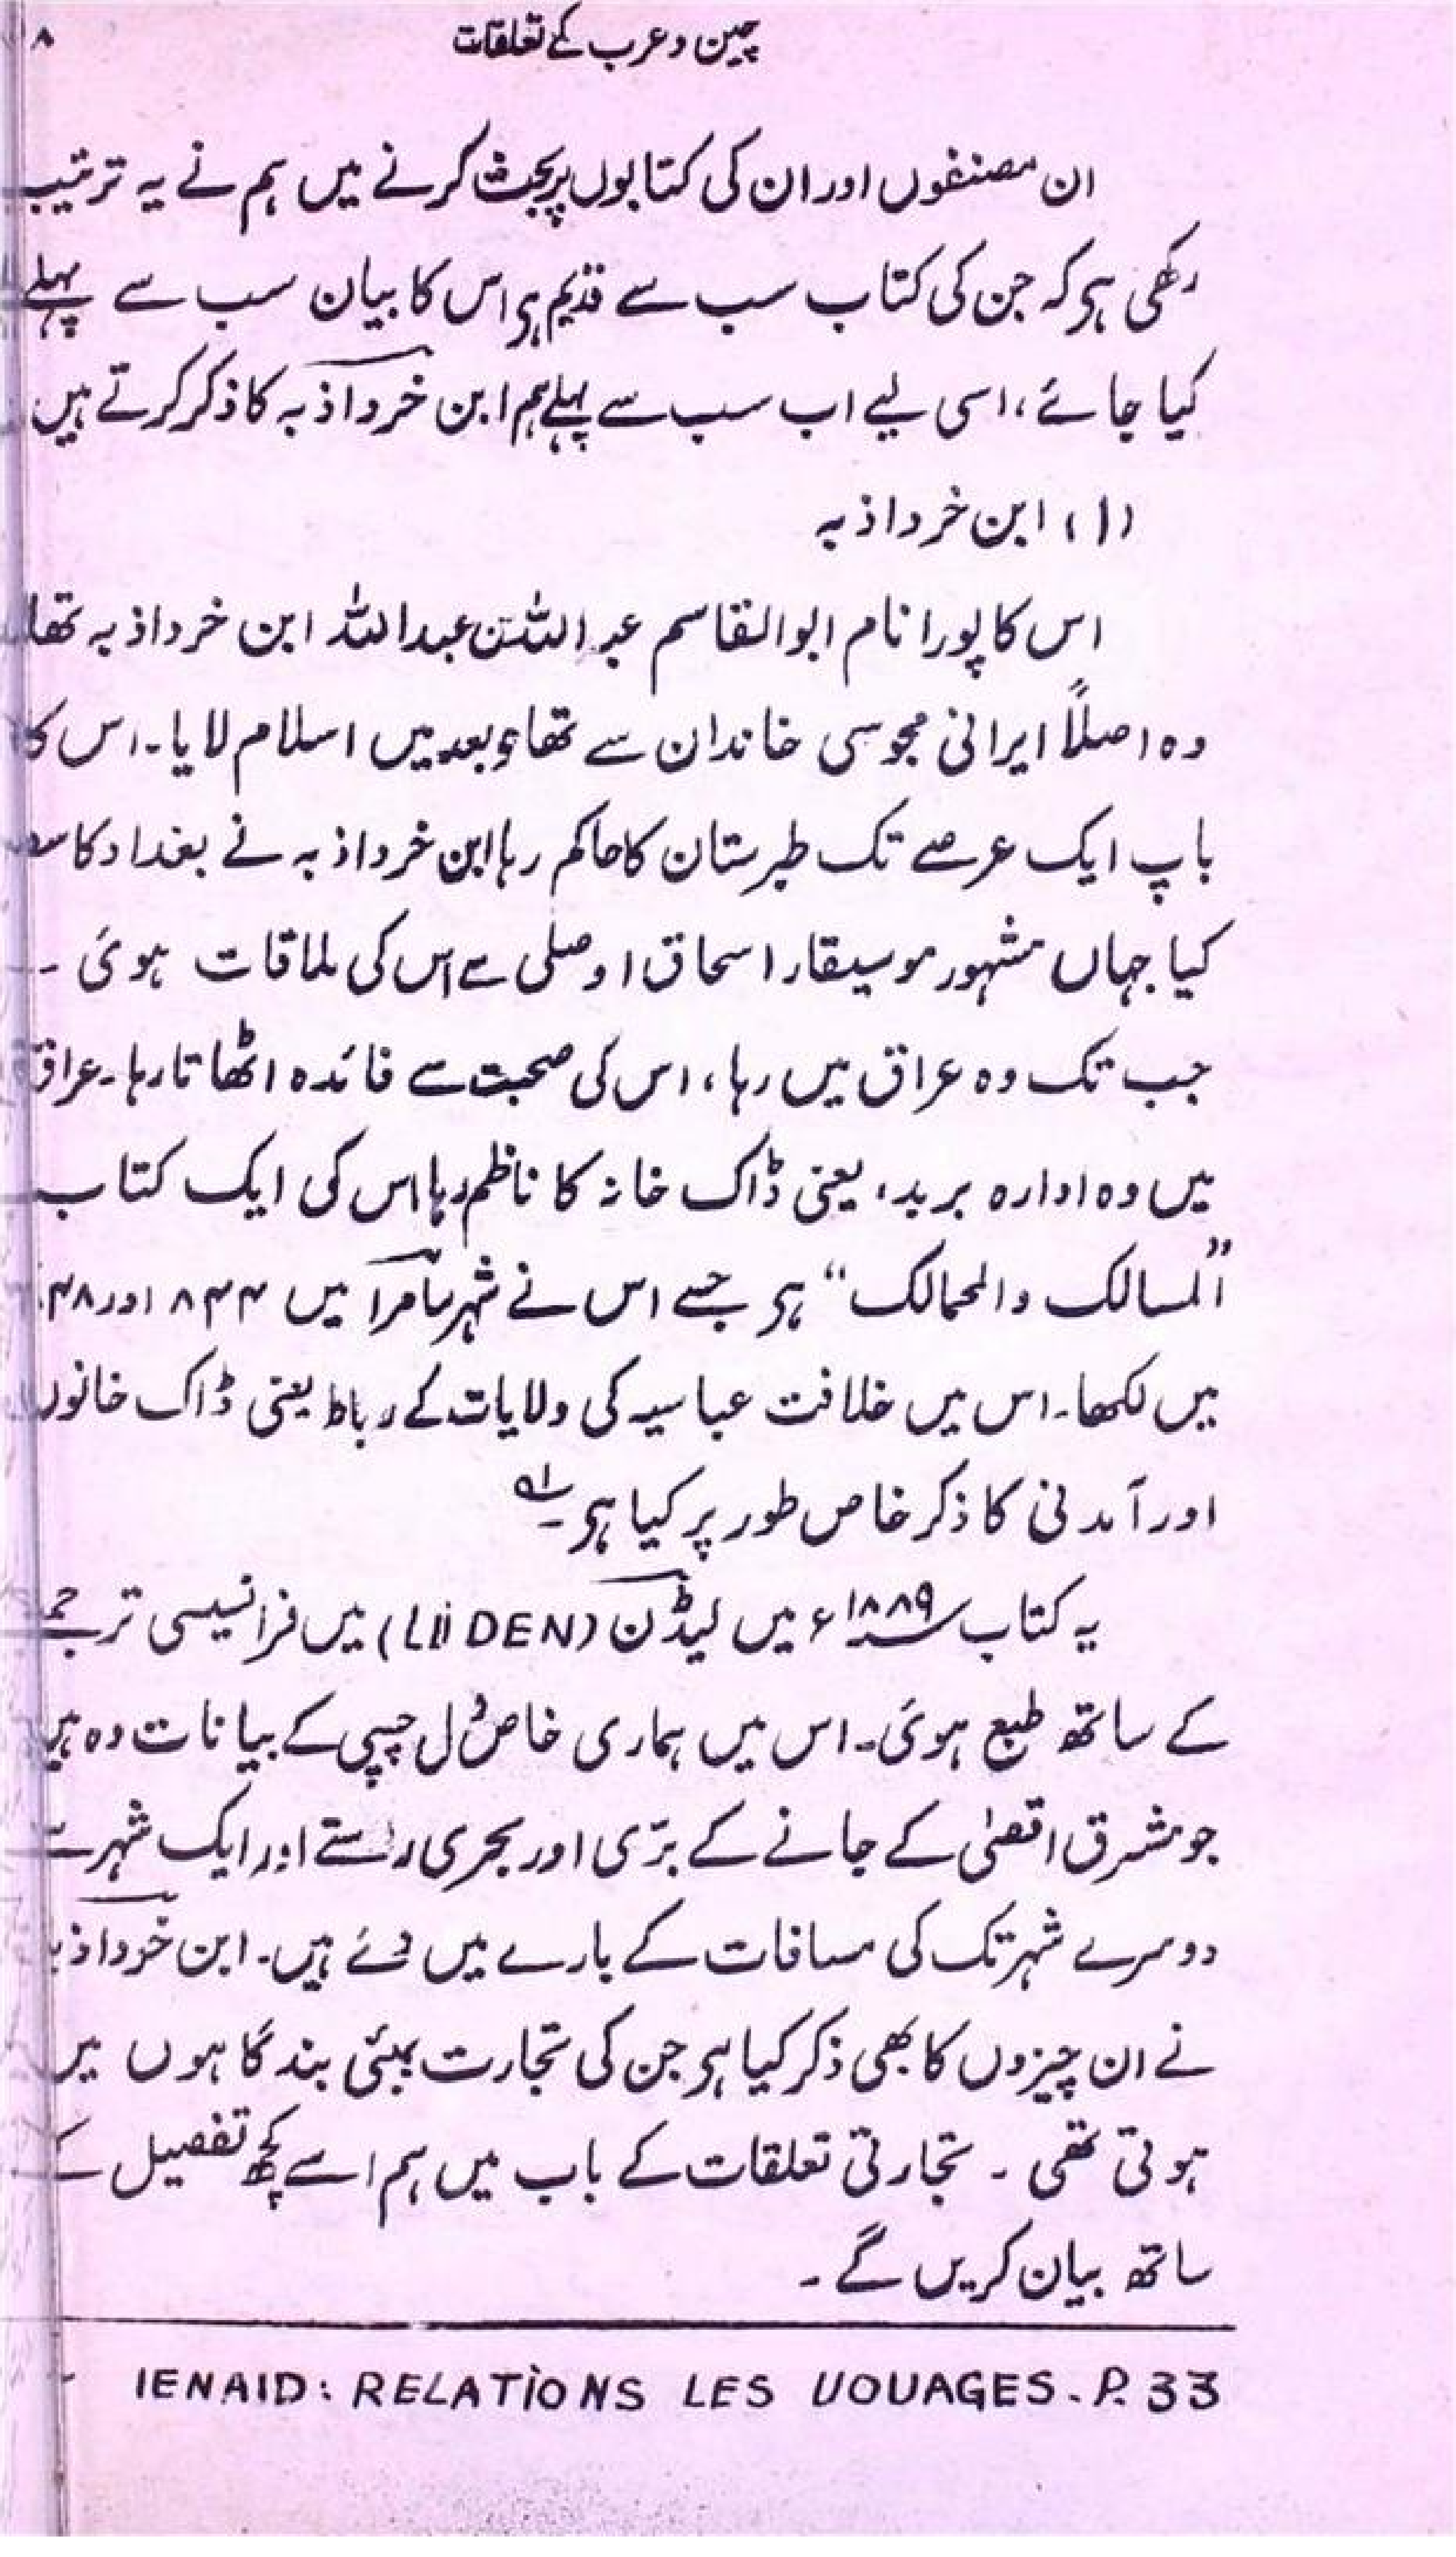 ۸ چین و عرب کے تعلقات
ان مصنفوں اور ان کی کتابوں پر بحث کرنے میں ہم نے یہ ترتیب
رکھی ہی کہ جن کی کتاب سب سے قدیم ہی اس کا بیان سب سے پہلے
کیا جائے، اسی لیے اب سب سے پہلے ہم ابن خرداذبہ کا ذکر کرتے ہیں
(۱) ابن خرداذبہ
اس کا پورا نام ابوالقاسم عبد اللہ بن عبداللہ ابن خرداذبہ تھا
وہ اصلاً ایرانی مجوسی خاندان سے تھا و بعد میں اسلام لایا۔ اس کا
باپ ایک عرصے تک طبرستان کا حاکم رہا ابن خرداذبہ نے بغداد کا
کیا جہاں مشہور موسیقار اسحاق اوصلی سے اس کی ملاقات ہوئی ۔
جب تک وہ عراق میں رہا، اس کی صحبت سے فائدہ اٹھاتا رہا۔ عراق
میں وہ ادارہ برید، یعنی ڈاک خانہ کا ناظم رہا اس کی ایک کتاب
”المسالک والممالک“ ہی جسے اس نے شہر سامرا میں ۸۴۴ اور ۸۴۸
میں لکھا۔ اس میں خلافت عباسیہ کی ولایات کے رباط یعنی ڈاک خانوں
اور آمدنی کا ذکر خاص طور پر کیا ہی۔ ؂۱
یہ کتاب ۱۸۸۹ء میں لیڈن (LIIDEN) میں فرانسیسی ترجمے
کے ساتھ طبع ہوئی۔ اس میں ہماری خاص دل چسپی کے بیانات وہ ہیں
جو مشرق اقصیٰ کے جانے کے برّی اور بحری راستے اور ایک شہر سے
دوسرے شہر تک کی مسافات کے بارے میں دئے ہیں۔ ابن خورداذبہ
نے ان چیزوں کا بھی ذکر کیا ہی جن کی تجارت بمبئی بندگاہوں میں
ہوتی تھی ۔ تجارتی تعلقات کے باب میں ہم اسے کچھ تفصیل کے
ساتھ بیان کریں گے ۔
IENAID: RELATIONS LES UOUAGES. P. 33